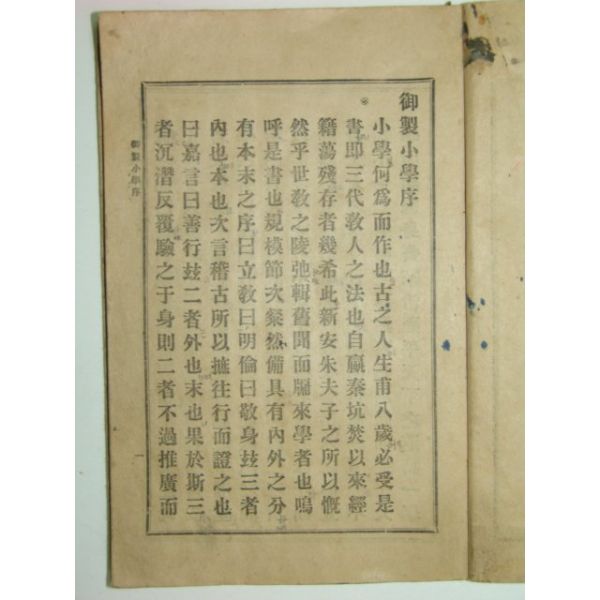 御製小學序
小學何爲而作也古之人生甫八歲必受是
書即三代教人之法也自嬴秦坑焚以來經
籍蕩殘存者幾希此新安朱夫子之所以慨
然乎世教之陵弛輯舊聞而牖來學者也嗚
呼是書也規模節次粲然備具有內外之分
有本末之序曰立教曰明倫曰敬身玆三者
內也本也次言稽古所以摭往行而證之也
曰嘉言曰善行玆二者外也末也果於斯三
者沉潛反覆驗之于身則二者不過推廣而
御製小學序
一